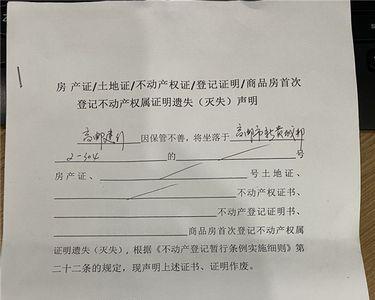 房产证/土地证/不动产权证/登记证明/商品房首次
登记不动产权属证明遗失（灭失）声明
高邮建行 因保管不善，将坐落于 高邮市
2-304 的 号
房产证、 号土地证、
不动产权证书、
不动产登记证明书、
商品房首次登记不动产权属
证明遗失（灭失），根据《不动产登记暂行条例实施细则》第
二十二条的规定，现声明上述证书、证明作废。